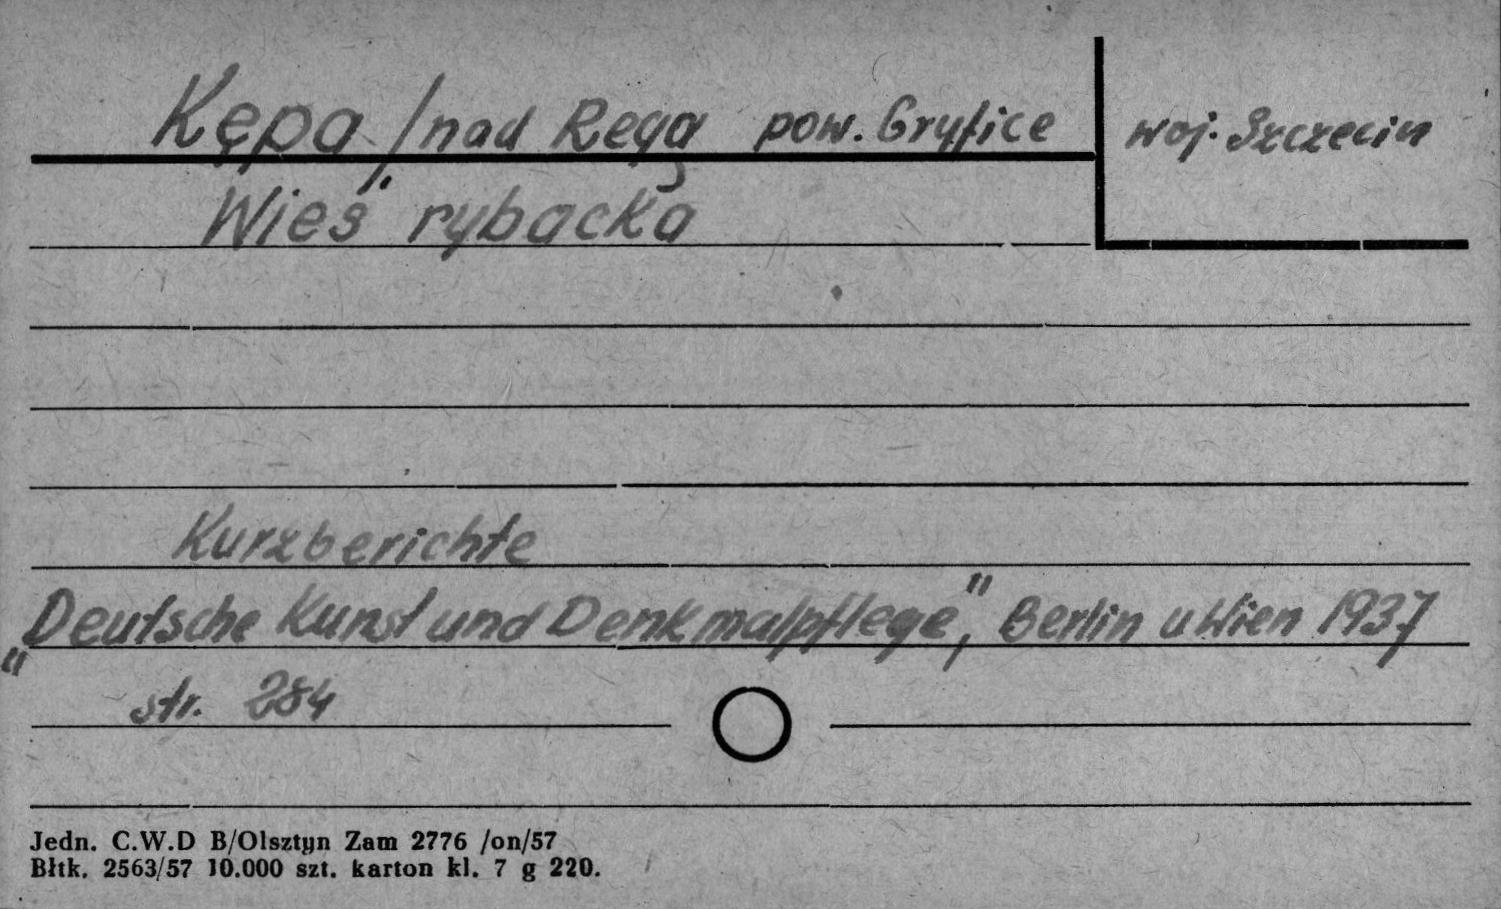 Kępa /nad Regą pow. Gryfice woj. Szczecin
Wieś rybacka
Kurzberichte
"Deutsche Kunst und Denkmalpflege", Berlin u Wien 1937
str. 284
Jedn. C.W.D B/Olsztyn Zam 2776 /on/57
Błtk. 2563/57 10.000 szt. karton kl. 7 g 220.